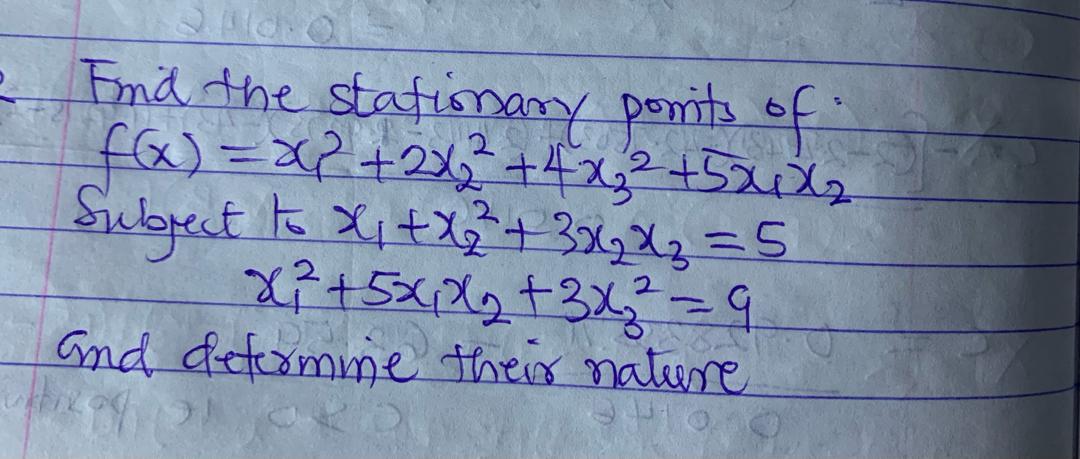 Find the stationary points of:
f(x) = x₁² + 2x₂² + 4x₃² + 5x₁x₂
Subject to x₁ + x₂² + 3x₂x₃ = 5
x₁² + 5x₁x₂ + 3x₃² = 9
and determine their nature